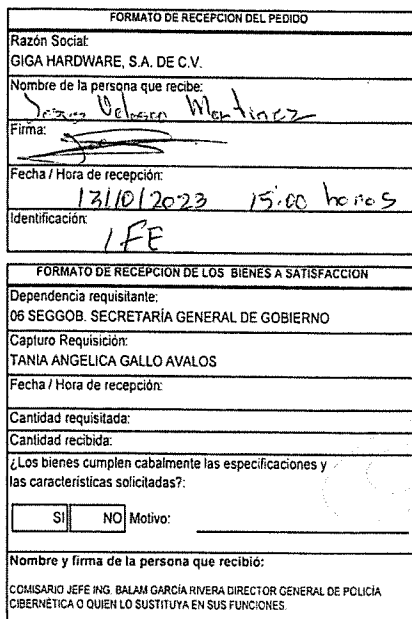 FORMATO DE RECEPCION DEL PEDIDO
Razón Social:
GIGA HARDWARE, S.A. DE C.V.
Nombre de la persona que recibe:
Martinez
Firma:
Fecha / Hora de recepción:
13/10/2023 15:00 horas
Identificación:
IFE
FORMATO DE RECEPCION DE LOS BIENES A SATISFACCION
Dependencia requisitante:
06 SEGGOB. SECRETARÍA GENERAL DE GOBIERNO
Capturo Requisición:
TANIA ANGELICA GALLO AVALOS
Fecha / Hora de recepción:
Cantidad requisitada:
Cantidad recibida:
¿Los bienes cumplen cabalmente las especificaciones y
las características solicitadas?:
SI NO Motivo:
Nombre y firma de la persona que recibió:
COMISARIO JEFE ING. BALAM GARCÍA RIVERA DIRECTOR GENERAL DE POLICÍA
CIBERNÉTICA O QUIEN LO SUSTITUYA EN SUS FUNCIONES.